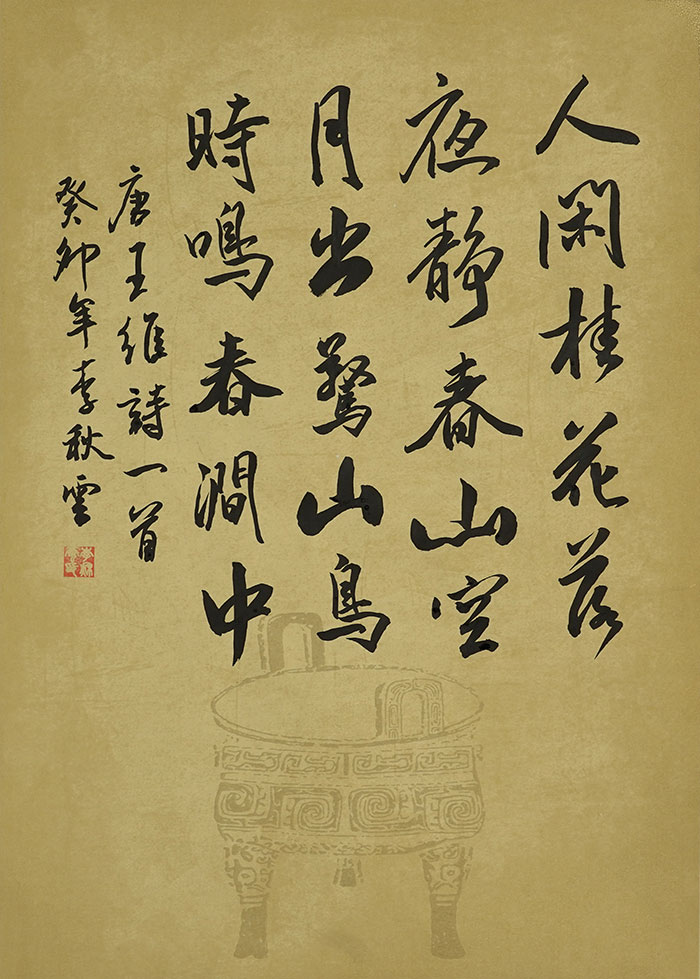 人閑桂花落
夜静春山空
月出驚山鳥
時鳴春澗中
唐王維詩一首
癸卯年李秋雲